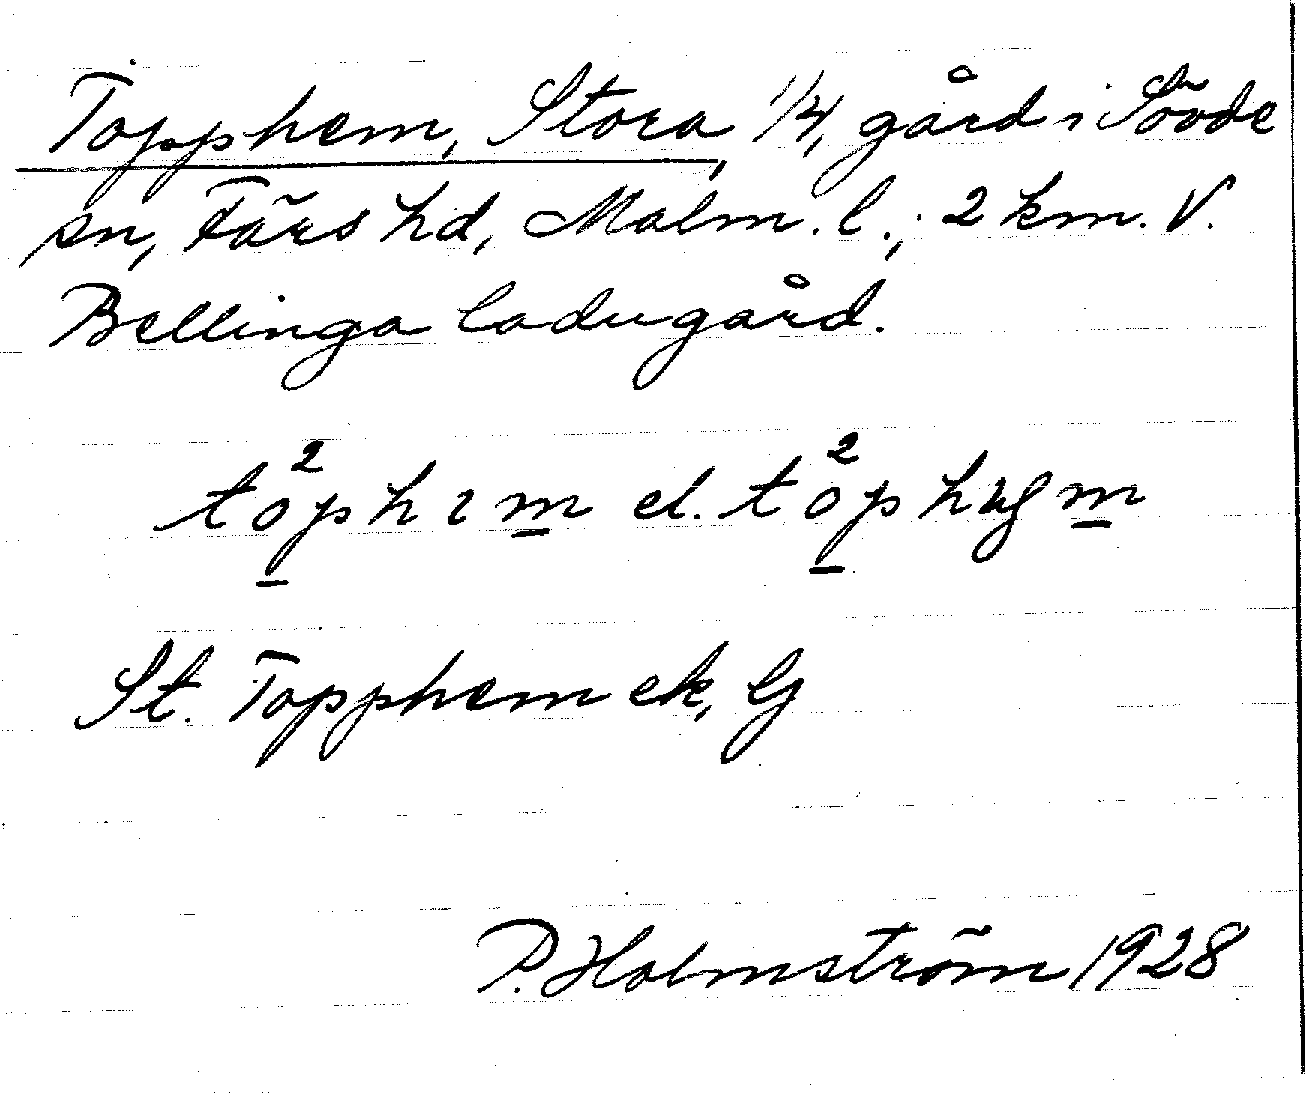 Topphem, Stora, 1/4, gård i Sövde
sn, Färs hd, Malm. l.; 2 km. V.
Bellinga ladugård.
to²phım el. to²phęm
St. Topphem ek, G
P. Holmström 1928